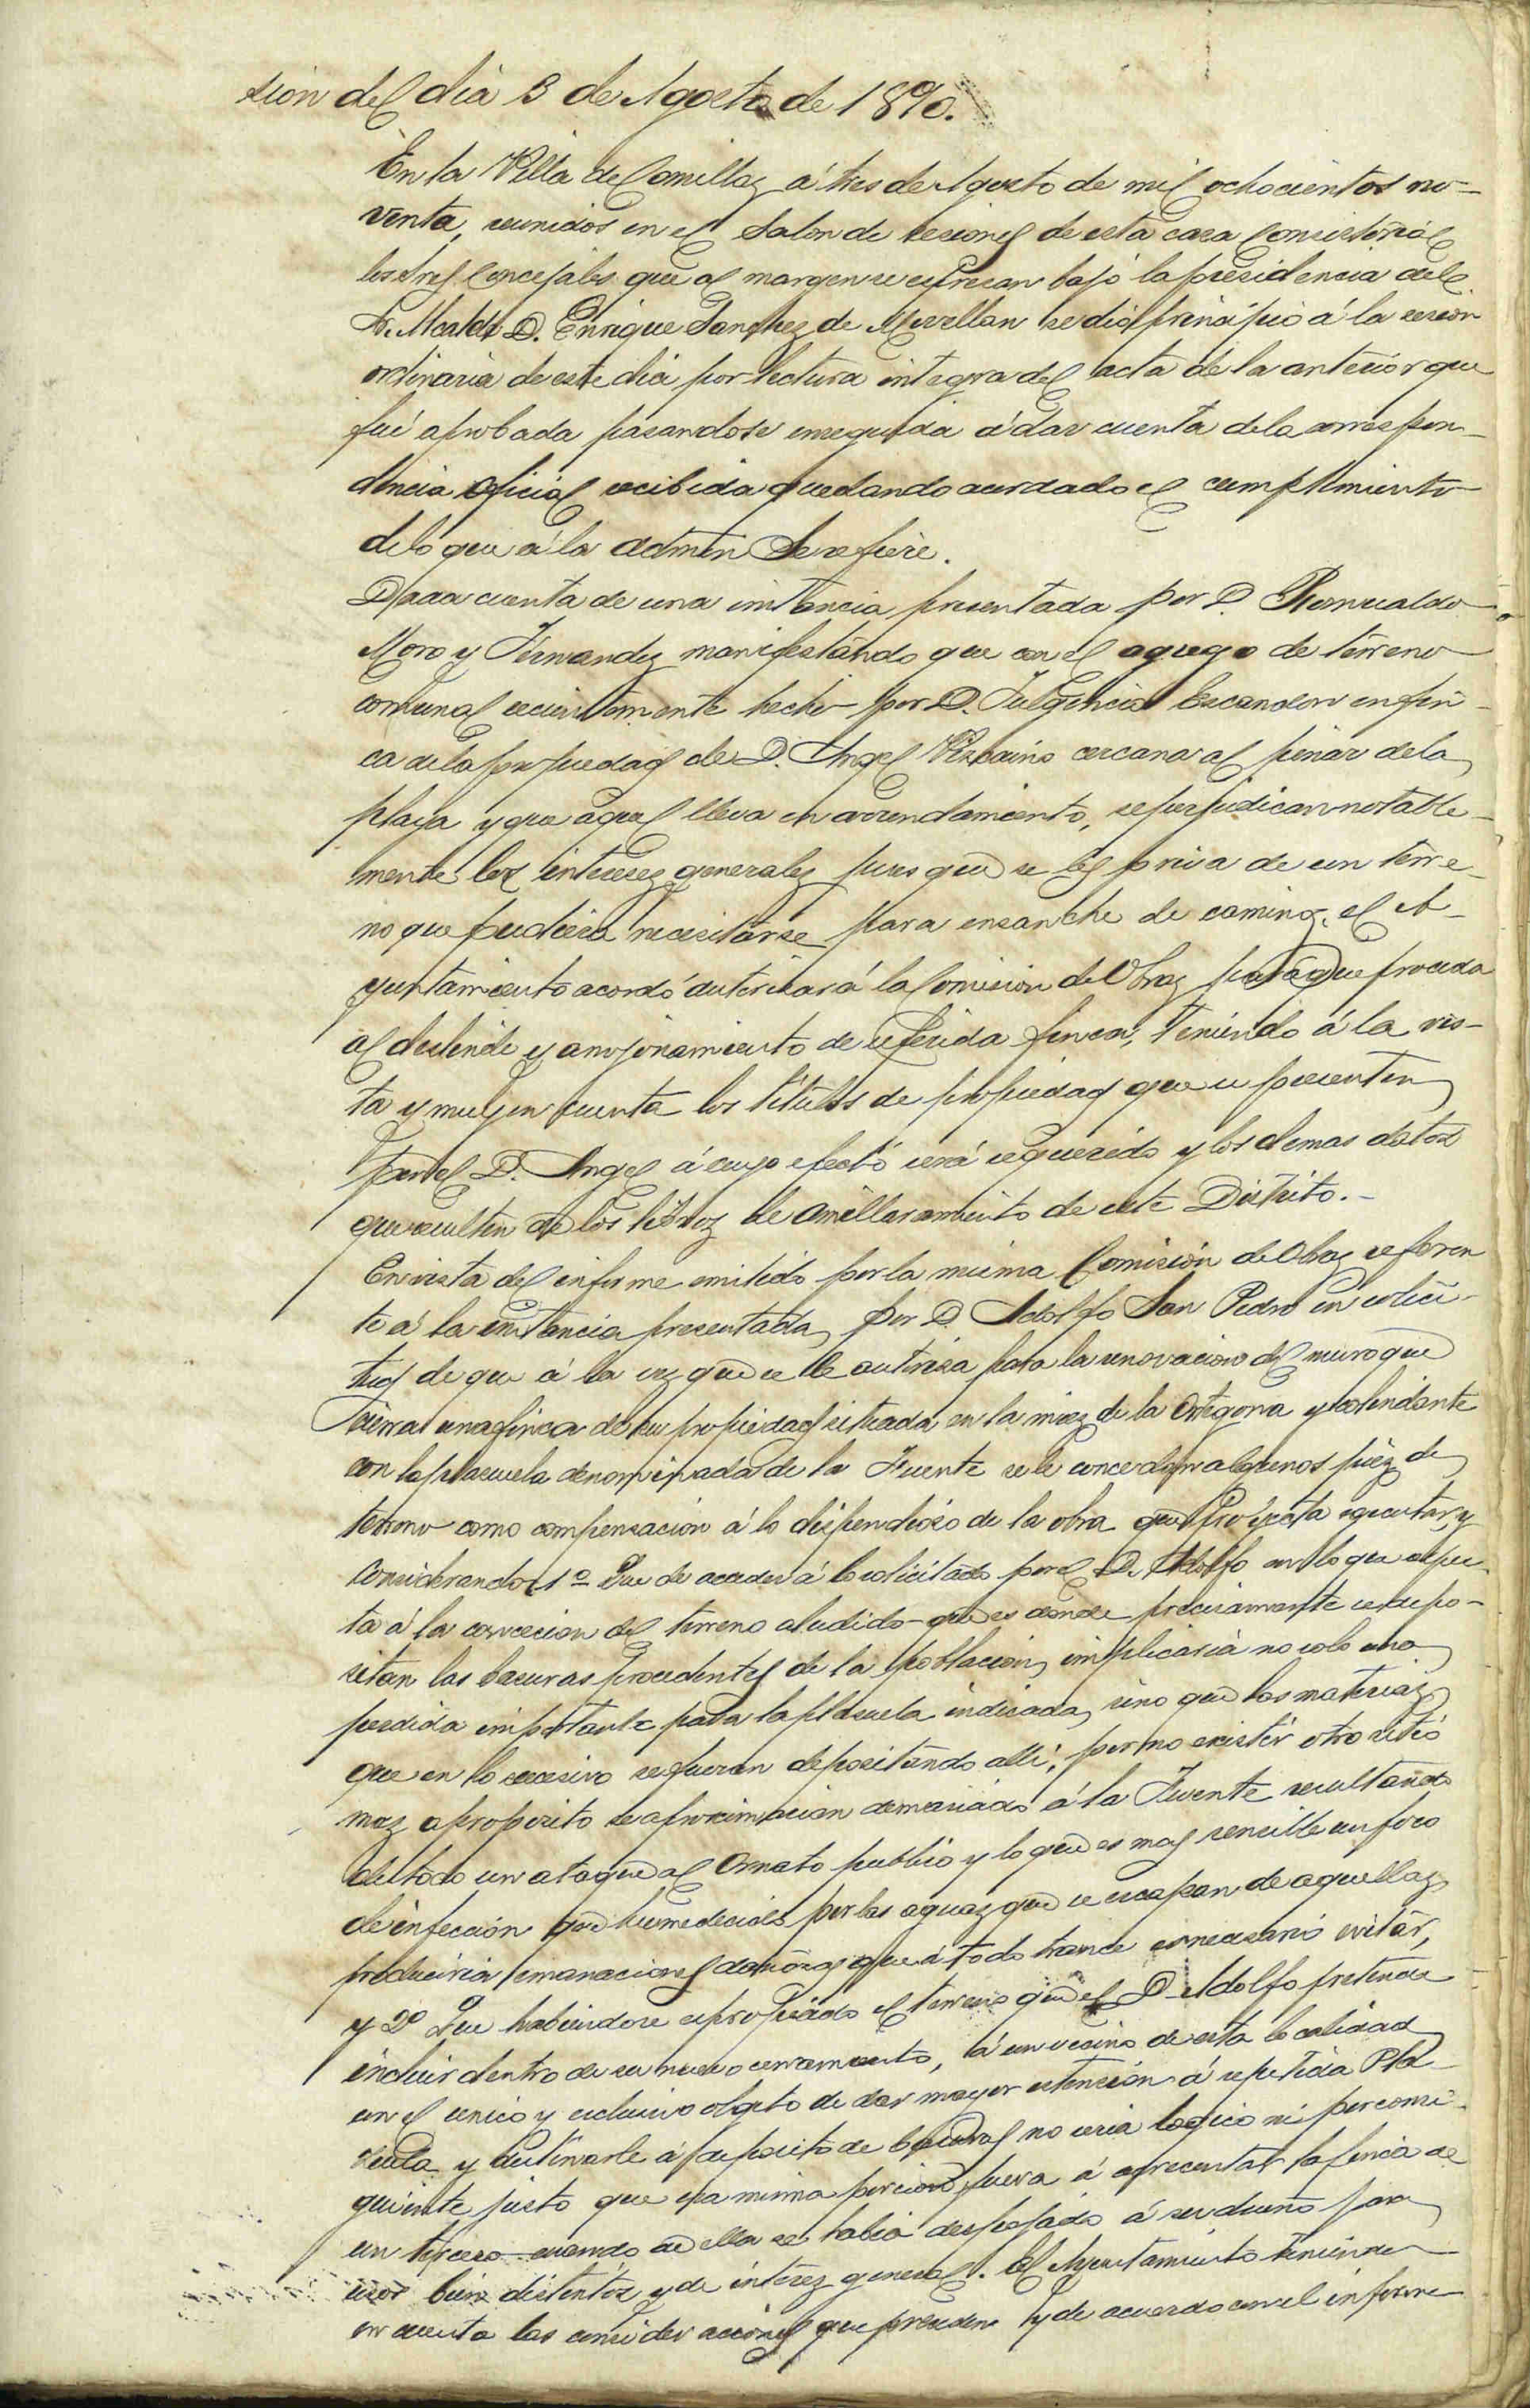 sion del dia 3 de Agosto de 1890.
En la Villa de Comillas á tres de Agosto de mil ochocientos no-
venta, reunidos en el Salon de sesiones de esta casa Consistorial
los Sres Concejales que al margen se espresan bajo la presidencia del
Sr. Alcalde D. Enrique Sanchez de Movellan se dió principio á la sesion
ordinaria de este dia por lectura integra del acta de la anterior que
fué aprobada pasandose enseguida á dar cuenta de la correspon-
dencia oficial recibida quedando acordado el cumplimiento
de lo que á la admón Se refiere.
Dada cuenta de una instancia presentada por D. Romualdo
Moro y Fernandez manifestando que con el agrego de terreno
comunal recientemente hecho por D. Fulgencio Escandon en fin-
ca de la propiedad de D. Angel Vizcaino cercana al pinar de la
playa y que aquel lleva en arrendamiento, se perjudican notable-
mente los intereses generales pues que se les priva de un terre-
no que pudiera necesitarse para ensanche de camino, el A-
yuntamiento acordó autorizar á la Comision de Obras para que proceda
al deslinde y amojonamiento de referida finca, teniendo á la vis-
ta y muy en cuenta los titulos de propiedad que se presenten
por el D. Angel á cuyo efecto será requerido y los demas datos
que resulten de los libros de amillaramiento de este Distrito.-
En vista del informe emitido por la misma Comisión de Obras referen
te á la instancia presentada por D. Adolfo San Pedro en solici-
tud de que á la vez que se le autoriza para la renovacion del muro que
cierra una finca de su propiedad situada en la mies de la Ortegona y colindante
con la plazuela denominada de la Fuente se le concedan algunos piés de
terreno como compensación á lo dispendioso de la obra que proyecta egecutar, y
Considerando 1º Que de acceder á lo solicitado por el D. Adolfo en lo que respec-
ta á la concecion del terreno aludido - que es donde precisamente se depo-
sitan las basuras procedentes de la poblacion, implicaria no solo una
perdida importante para la plazuela indicada, sino que las materias
que en lo sucesivo se fueran depositando alli, por no existir otro sitio
mas aproposito se aproximarian demasiado á la Fuente resultando
de todo un ataque al ornato publico y lo que es mas sensible un foco
de infección que humedecidas por las aguas que se escapan de aquellas
produciria emanaciones dañosas que á todo trance es necesario evitar,
y 2º Que habiendose espropiado el terreno que el D. Adolfo pretende
incluir dentro de su nuevo cerramiento, á un vecino de esta localidad
con el unico y esclusivo objeto de dar mayor estensión á repetida Pla-
zuela y destinarle á deposito de basuras no seria logico ni por consi-
guiente justo que esa misma porcion fuera á acrecentar la finca de
un tercero cuando de ella se habia despojado á su dueño para
usos bien distintos y de interés general. El Ayuntamiento teniendo
en cuenta las consideraciones que preceden y de acuerdo con el informe